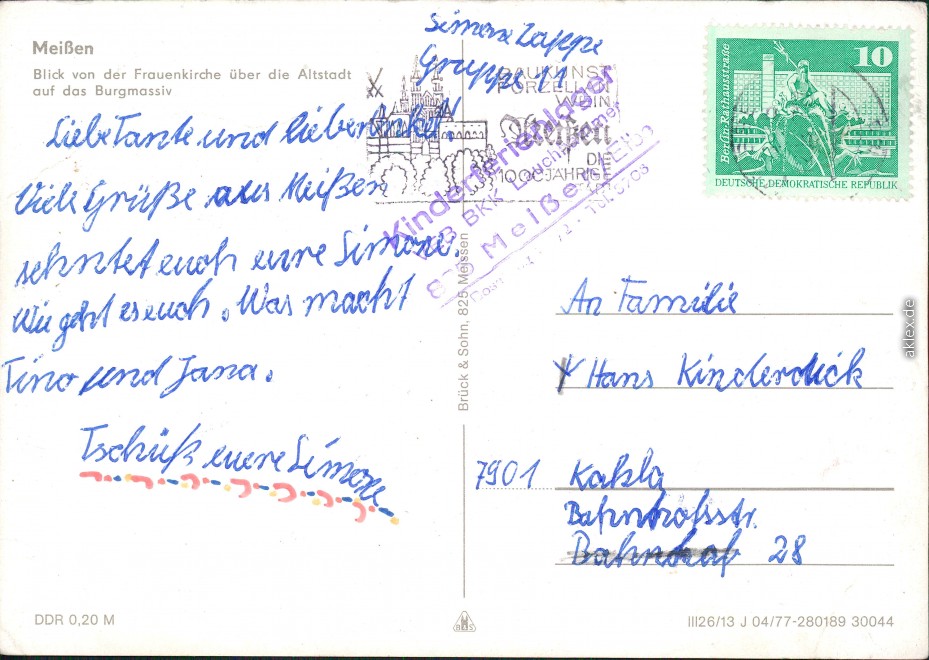 Meißen
Blick von der Frauenkirche über die Altstadt
auf das Burgmassiv
Simone Zappe
Gruppe 11
Liebe Tante und lieber onkel!
Viele Grüße aus Meißen
sehntet euch eure Simone.
Wie geht es euch. Was macht
Tino und Jana.
Tschüß euere Simone
DDR 0,20 M
Brück & Sohn, 825 Meissen
B&S
BAUKUNST
PORZELLAN
WEIN
Meißen
DIE
1000 JÄHRIGE
Kinderferienlager
BKK
825 Meißen
10
Berlin-Rathausstraße
DEUTSCHE DEMOKRATISCHE REPUBLIK
An Familie
Hans Kinderdick
7901 Kahla
Bahnhofsstr.
Bahnhof 28
III26/13 J 04/77-280189 30044
aklex.de